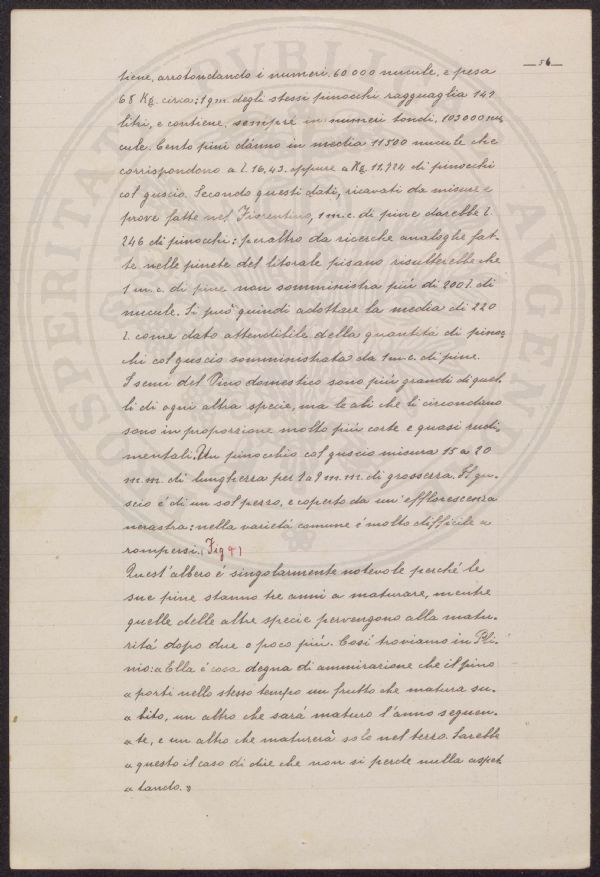 — 56 —
tiene, arrotondando i numeri. 60 000 nucule, e pesa
68 Kg. circa; 1 q.m. degli stessi pinocchi ragguaglia 147
litri, e contiene, sempre in numeri tondi, 103 000 nu,
cule. Cento pini dànno in media 11500 nucule che
corrispondono a l. 16,43. oppure a Kg. 11,724 di pinocchi
col guscio. Secondo questi dati, ricavati da misure e
prove fatte nel Fiorentino, 1 m.c. di pine darebbe l.
246 di pinocchi: peraltro da ricerche analoghe fat-
te nelle pinete del litorale pisano risulterebbe che
1 m.c. di pine non somministra più di 200 l. di
nucule. Si può quindi adottare la media di 220
l. come dato attendibile della quantità di pinoc,
chi col guscio somministrata da 1 m.c. di pine.
I semi del Pino domestico sono più grandi di quel,
li di ogni altra specie, ma le ali che li circondano
sono in proporzione molto più corte e quasi rudi,
mentali. Un pinocchio col guscio misura 15 a 20
m.m. di lunghezza per di grossezza. Il gu-
scio è di un sol pezzo, e coperto da un'efflorescenza
nerastra: nella varietà comune è molto difficile a
rompersi. (Fig 4)
Quest'albero è singolarmente notevole perché le
sue pine stanno tre anni a maturare, mentre
quelle delle altre specie pervengono alla matu-
rità dopo due o poco più. Così troviamo in Pli-
nio: « Ella è cosa degna di ammirazione che il pino
« porti nello stesso tempo un frutto che matura su-
« bito, un altro che sarà maturo l'anno seguen-
« te, e un altro che maturerà solo nel terzo. Sarebbe
« questo il caso di dire che non si perde nulla aspet
« tando. »